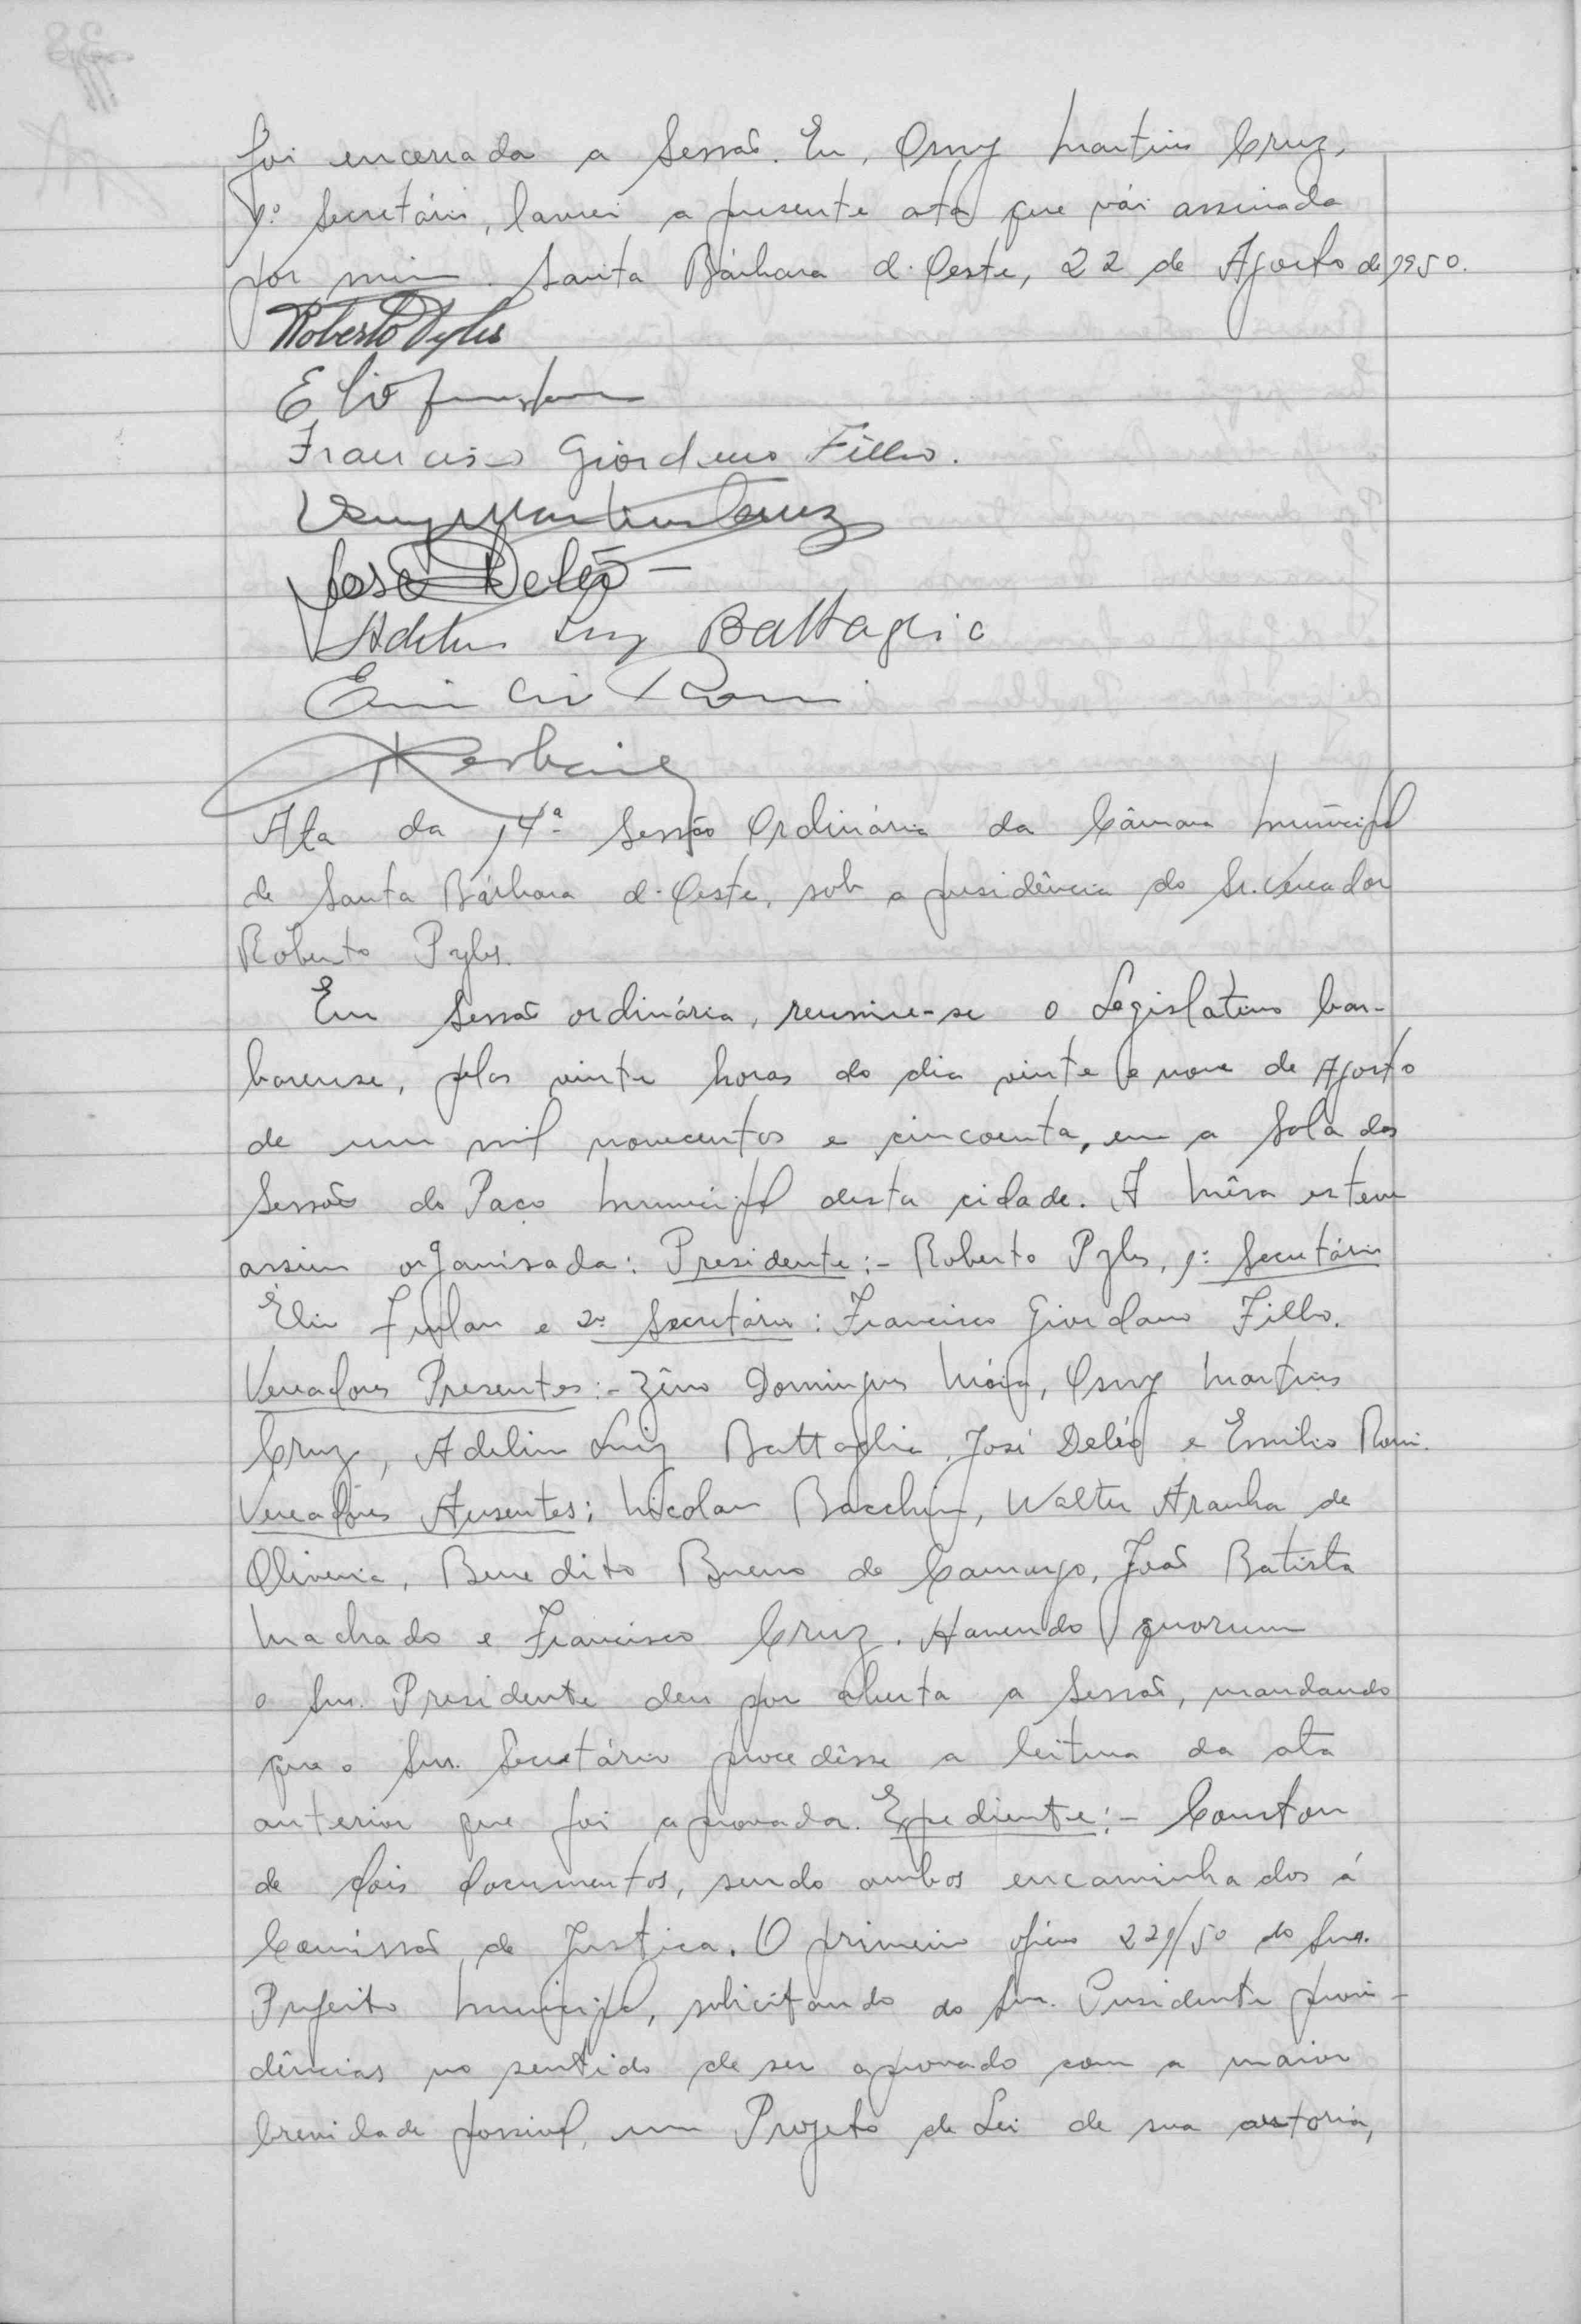 foi encerrada a Sessão. Eu, Osny Martins Cruz,
1º. Secretário, lavrei a presente ata que vái assinada
por mim. Santa Bárbara d'Oeste, 22 de Agosto de 1950.
Roberto Pyles
Elio
Francisco Giordano Filho.
Osny Martins Cruz
José Deléo
Adelino Luiz Battaglia
Emilio Romi
Ata da 14ª. Sessão Ordinária da Câmara Municipal
de Santa Bárbara d'Oeste, sob a presidência do Sr. Vereador
Roberto Pyles.
Em Sessão ordinária, reuniu-se o Legislativo bar-
barense, pelas vinte horas do dia vinte e nove de Agosto
de um mil novecentos e cincoenta, em a Sala das
Sessões do Paço Municipal desta cidade. A Mêsa esteve
assim organisada: Presidente:- Roberto Pyles, 1º: Secretário
Élio Furlan e 2º Secretário: Francisco Giordano Filho.
Vereadores Presentes:- Zêno Domingues Maia, Osny Martins
Cruz, Adelino Luiz Battaglia, José Deléo e Emilio Romi.
Vereadores Ausentes: Nicolau Bacchin, Walter Aranha de
Oliveira, Benedito Bueno de Camargo, João Batista
Machado e Francisco Cruz. Havendo quorum
o Snr. Presidente deu por aberta a Sessão, mandando
que o Snr. Secretário procedêsse a leitura da ata
anterior que foi aprovada. Expediente:- Constou
de dois documentos, sendo ambos encaminhados á
Comissão de Justiça. O primeiro ofício 221/50 do Snr.
Prefeito Municipal, solicitando do Snr. Presidente provi-
dências no sentido de ser aprovado com a maior
brevidade possivel, um Projeto de Lei de sua autoria,